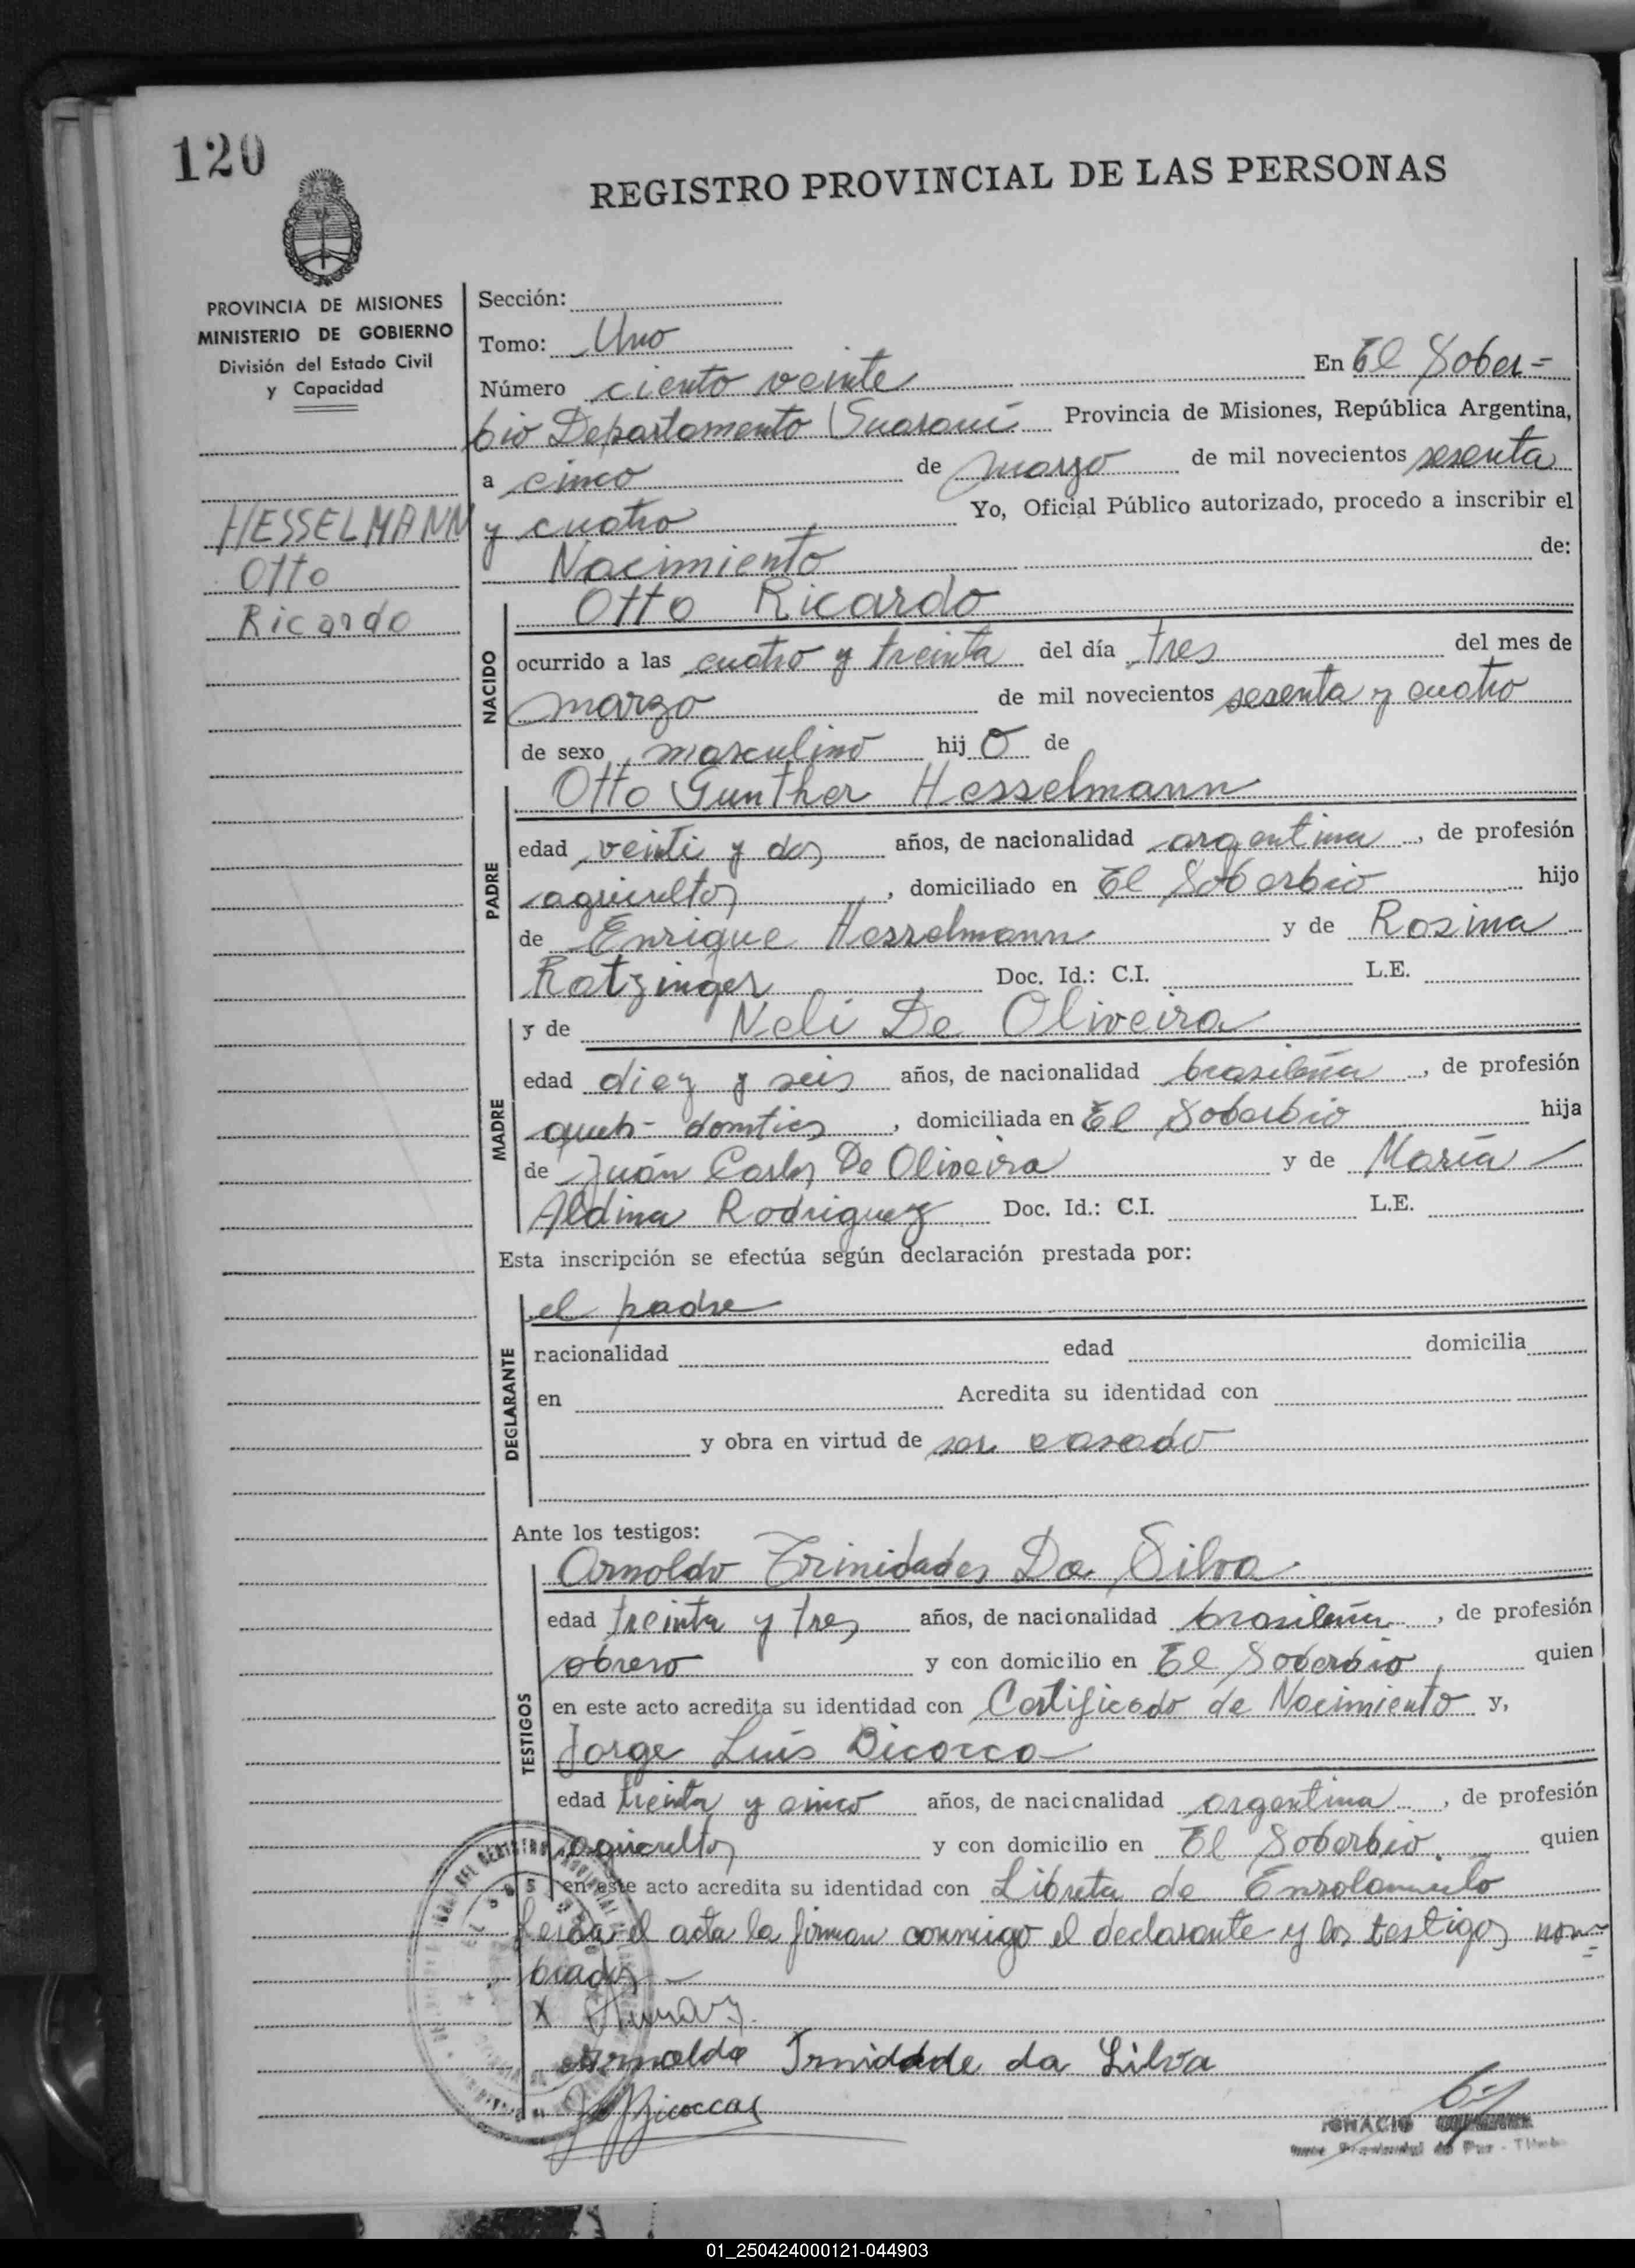 120
REGISTRO PROVINCIAL DE LAS PERSONAS
PROVINCIA DE MISIONES
MINISTERIO DE GOBIERNO
División del Estado Civil
y Capacidad
HESSELMANN
Otto
Ricardo
Sección:
Tomo: Uno
Número ciento veinte En El Sober=
bio Departamento Guaraní Provincia de Misiones, República Argentina,
a cinco de marzo de mil novecientos sesenta
y cuatro Yo, Oficial Público autorizado, procedo a inscribir el
Nacimiento de:
NACIDO
Otto Ricardo
ocurrido a las cuatro y treinta del día tres del mes de
marzo de mil novecientos sesenta y cuatro
de sexo masculino hij o de
PADRE
Otto Gunther Hesselmann
edad veinti y dos años, de nacionalidad argentina, de profesión
agricultor, domiciliado en El Soberbio hijo
de Enrique Hesselmann y de Rosina
Ratzinger Doc. Id.: C.I. L.E.
MADRE
y de Neli De Oliveira
edad diez y seis años, de nacionalidad brasileña, de profesión
, domiciliada en El Soberbio hija
de Juán Carlos De Oliveira y de María
Aldina Rodriguez Doc. Id.: C.I. L.E.
Esta inscripción se efectúa según declaración prestada por:
DECLARANTE
el padre
nacionalidad edad domicilia
en Acredita su identidad con
y obra en virtud de ser casado
Ante los testigos:
TESTIGOS
Arnoldo Trinidades Da Silva
edad treinta y tres años, de nacionalidad brasileña, de profesión
obrero y con domicilio en El Soberbio, quien
en este acto acredita su identidad con Certificado de Nacimiento y,
Jorge Luis Bicocca
edad treinta y cinco años, de nacionalidad argentina, de profesión
agricultor y con domicilio en El Soberbio. quien
en este acto acredita su identidad con Libreta de Enrolamiento
Leida el acta la firman conmigo el declarante y los testigos nom=
brados
X
Arnoldo Trnidade da Silva
Bicoccas
IGNACIO
01_250424000121-044903